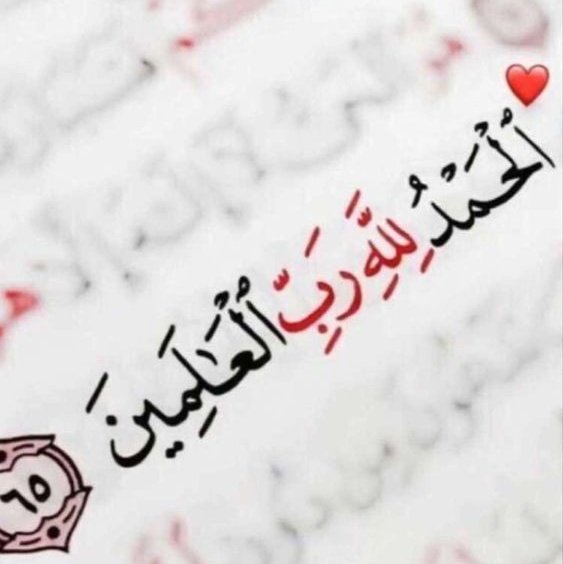 اَ۬لْحَمْدُ لِلَّهِ رَبِّ اِ۬لْعَٰلَمِينَ
٦٥